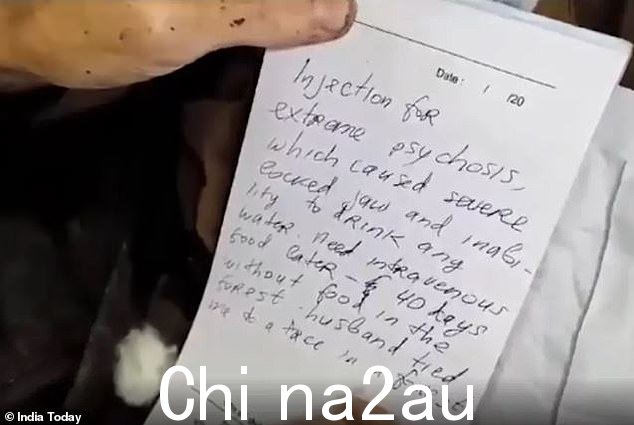 Date: / /20
Injection for
extreme psychosis,
which caused severe
locked jaw and inabi-
lity to drink any
water. Need intravenous
food later - 40 days
without food in the
forest. husband tied
me to a tree in
Chi na2au
© India Today